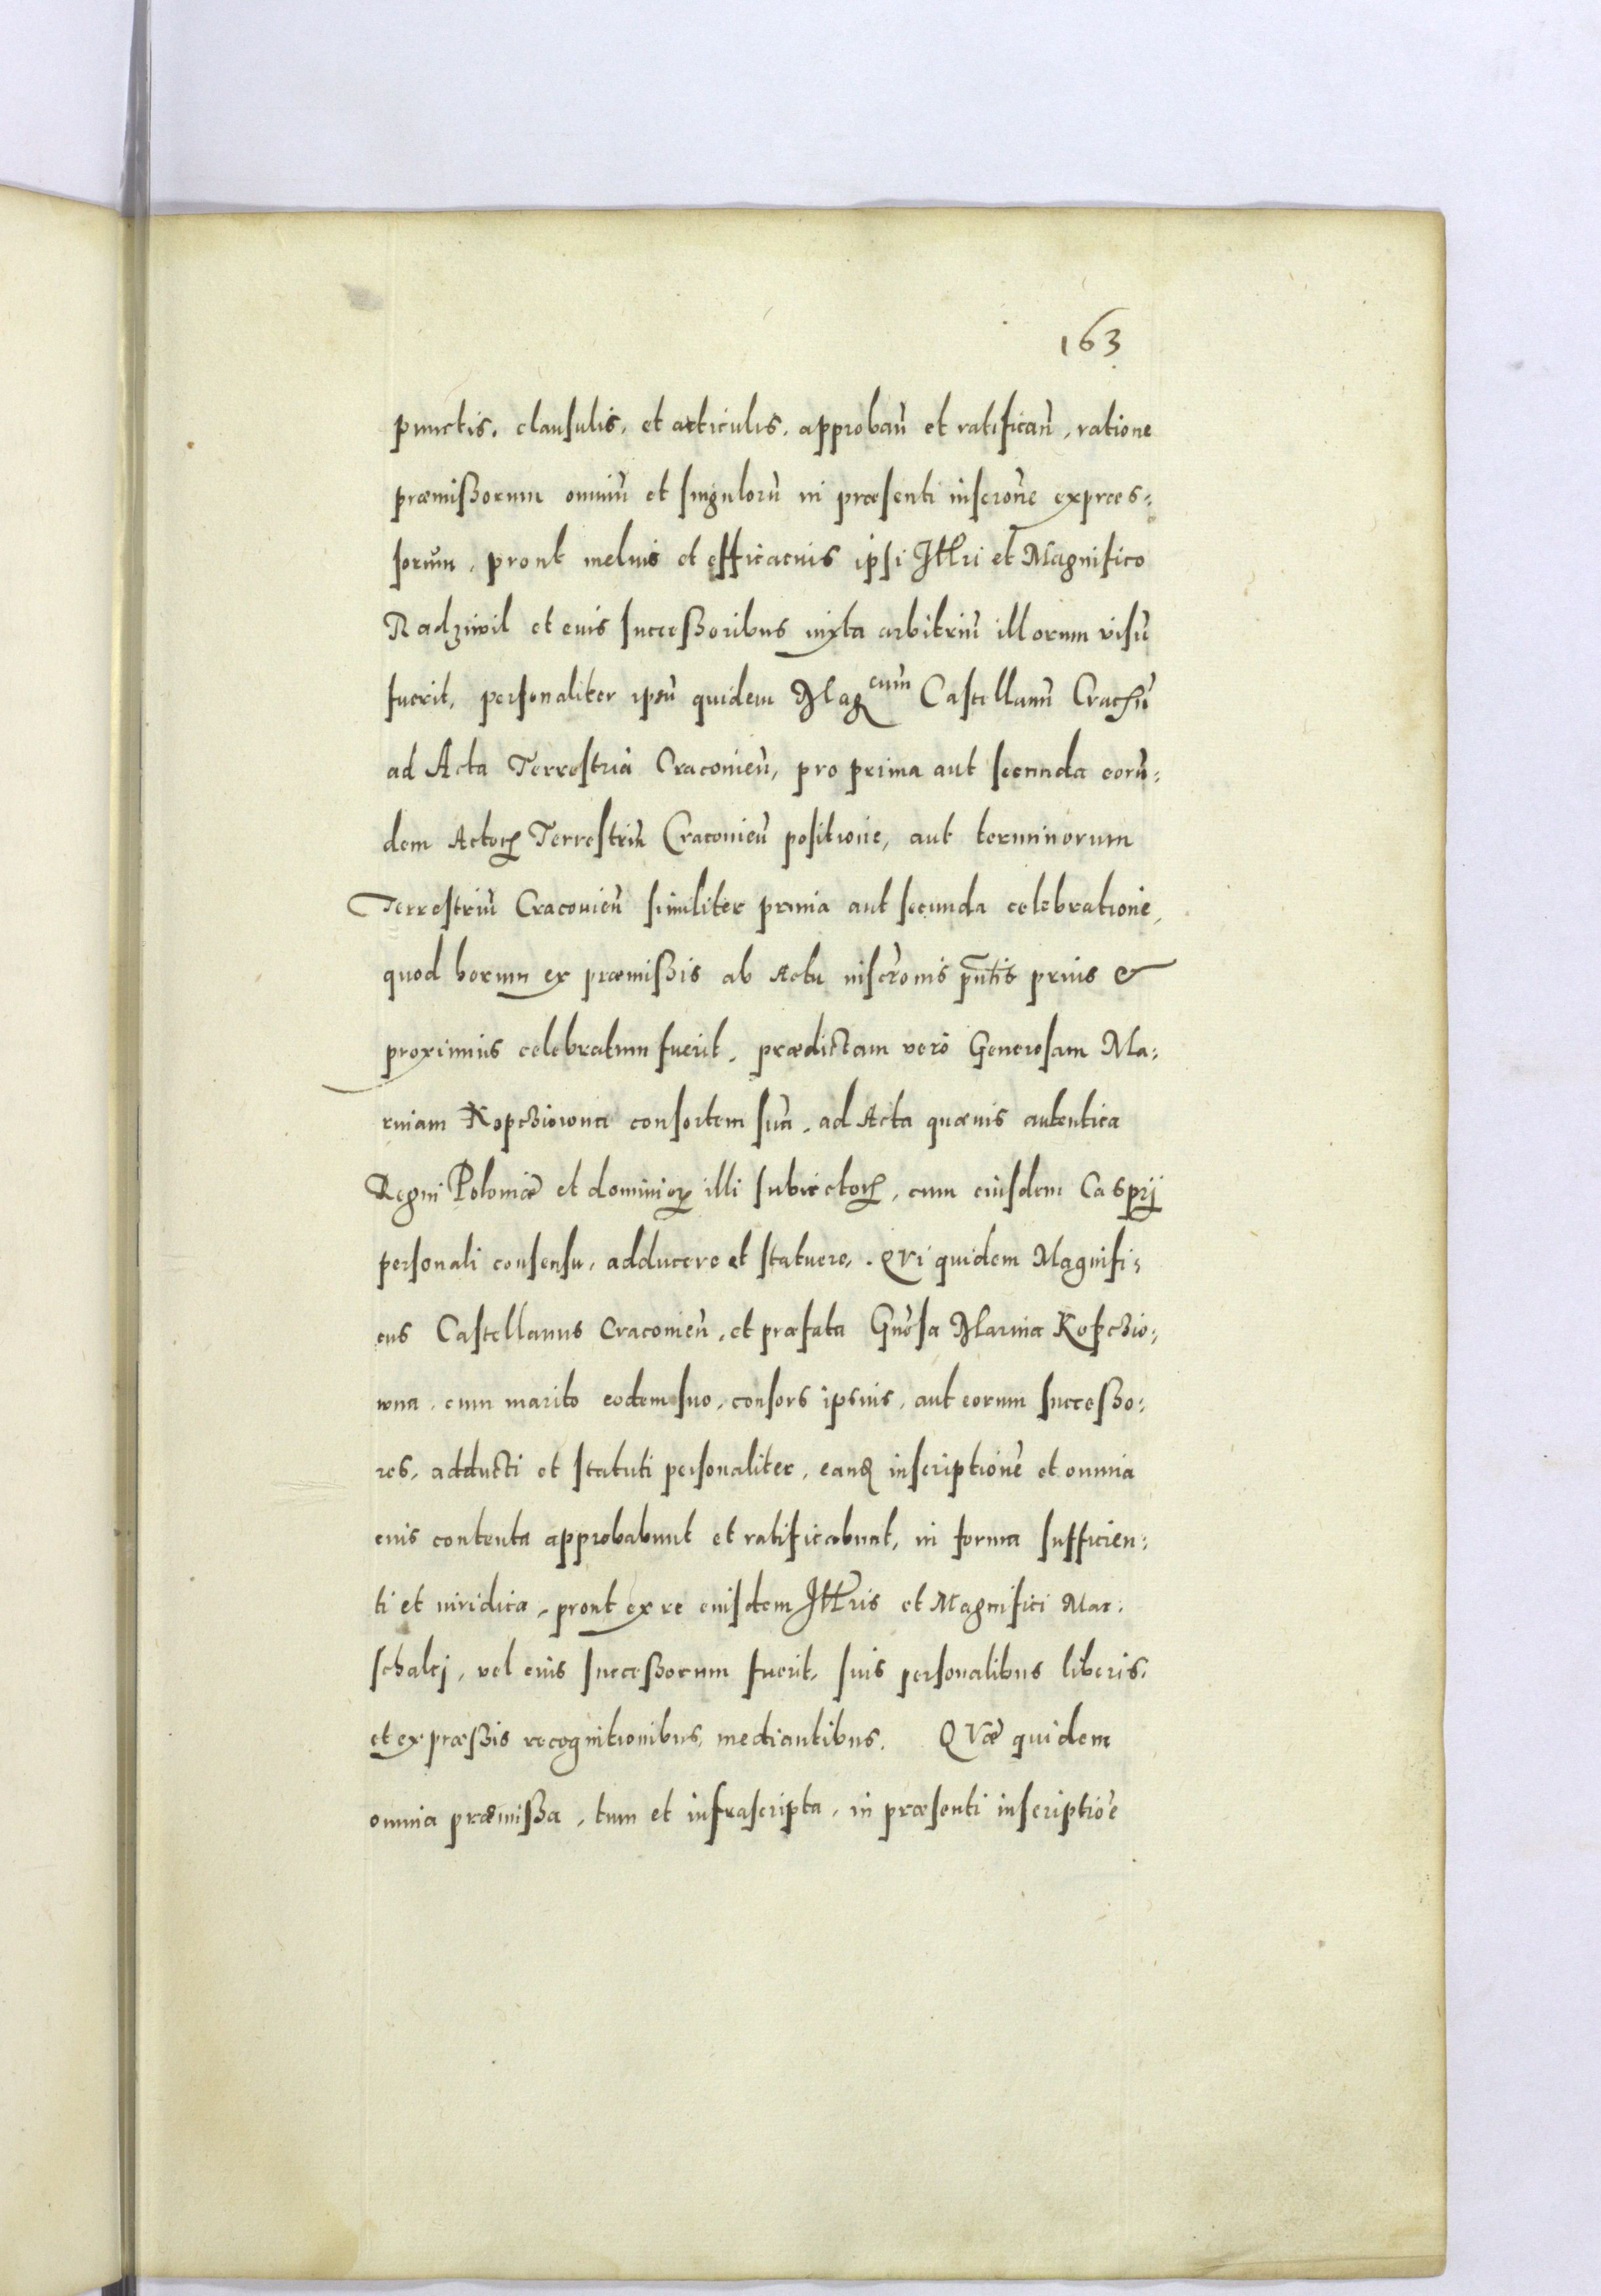 163
punctis, clausulis, et articulis, approban̄ et ratifican̄, ratione
præmissorum omniū et singulorū in præsenti inscrōne expres=
sorum, prout melius et efficacius ipsi Illri et Magnifico
Radziwil et eius successoribus iuxta arbitriū illorum visū
fuerit, personaliter ipsū quidem Mag cum Castellanū Crachū
ad Acta Terrestria Cracovien̄, pro prima aut secunda eorū=
dem Actoꝝ Terrestriū Cracovien̄ positione, aut terminorum
Terrestriū Cracovien̄ similiter prima aut secunda celebratione,
quod horum ex præmissis ab Actu inscrōnis pn̄tis prius &
proximius celebratum fuerit, prædictam vero Generosam Ma=
riniam Kopcziowna consortem suā, ad Acta quævis autentica
Regni Poloniæ et dominioꝝ illi subiectoꝝ, cum eiusdem Casprj
personali consensu, adducere et statuere. QVi quidem Magnifi=
cus Castellanus Cracovien̄, et præfata Gnōsa Marina Kopczio=
wna, cum marito eodem suo, consors ipsius, aut eorum successo=
res, adducti et statuti personaliter, eanꝗ inscriptionē et omnia
eius contenta approbabunt et ratificabunt, in forma sufficien=
ti et iuridica, prout ex re eiusdem Illris et Magnifici Mar=
schalcj, vel eius successorum fuerit, suis personalibus liberis,
et expræssis recognitionibus, mediantibus. QVæ quidem
omnia præmissa, tum et infrascripta, in præsenti inscriptiōe